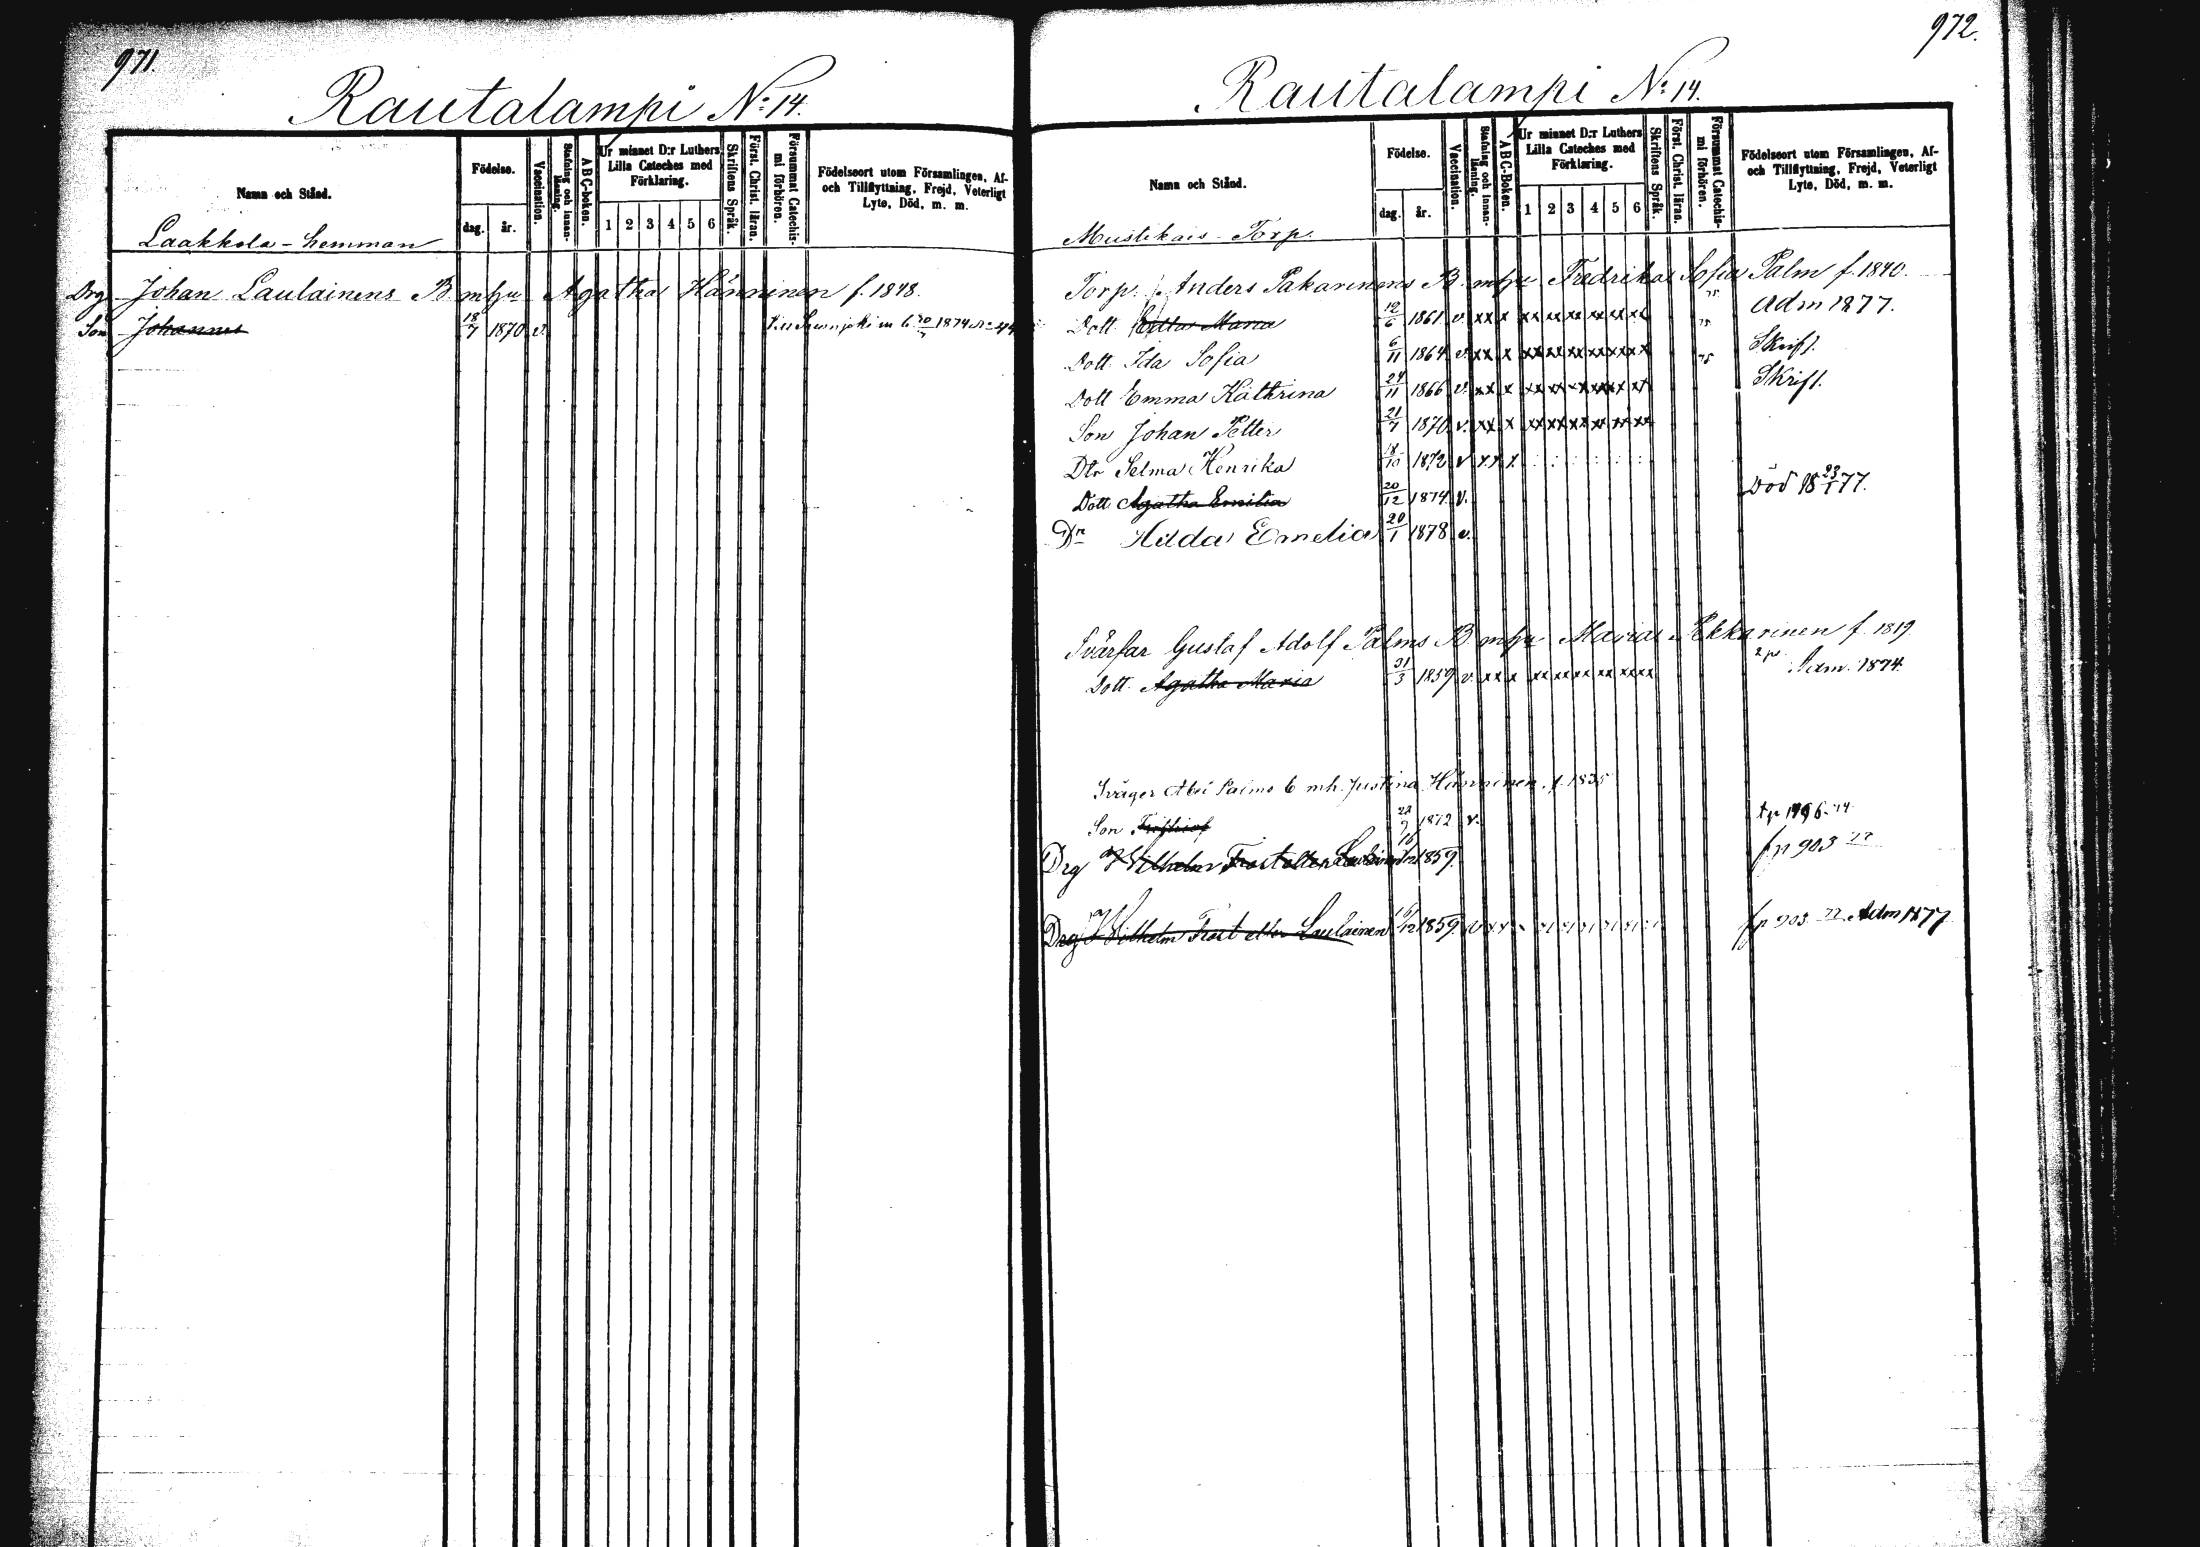 971.
Rautalampi No: 14.
Namn och Stånd.
Födelse.
dag. år.
Vaccination.
Stafning och innan-läsning.
ABC-boken.
Ur minnet D:r Luthers Lilla Cateches med Förklaring.
1 2 3 4 5 6
Skriftens Språk.
Först. Christ. läran.
Försummat Catechis-mi förhören.
Födelseort utom Församlingen, Af- och Tillflyttning, Frejd, Veterligt Lyte, Död, m. m.
Laakkola-hemman
Drg Johan Laulainens B. m hu Agatha Hänninen f. 1848.
Son Johannes 18/7 1870 v. 1874 No 44
972.
Rautalampi No: 14.
Namn och Stånd.
Födelse.
dag. år.
Vaccination.
Stafning och innan-läsning.
ABC-Boken.
Ur minnet D:r Luthers Lilla Cateches med Förklaring.
1 2 3 4 5 6
Skriftens Språk.
Först. Christ. läran.
Försummat Catechis-mi förhören.
Födelseort utom Församlingen, Af- och Tillflyttning, Frejd, Veterligt Lyte, Död, m. m.
Mustikais-Torp.
Torp. Anders Pakarinens B. m hu Fredrika Sofia Palm f. 1840.
Dott. Maria 12/6 1861 v. xx x xx xx xx xx xx xx 75 Adm 1877.
Dott Ida Sofia 6/11 1864 v. xx x xx xx xx xx xx xx 75 Skrift.
Dott Emma Kathrina 24/11 1866 v. xx x xx xx xx xx xx xx 75 Skrift.
Son Johan Petter 21/7 1870 v. xx x xx xx xx xx xx xx
Dtr Selma Henrika 18/10 1872 v x x x : : : : : :
Dott Agatha Emilia 20/12 1874 v. Död 18 23/1 77.
Dr Hilda Emelia 20/1 1878 v.
Svärfar Gustaf Adolf Palms B m hu Maria Pekkarinen f. 1819
Dott. Agatha Maria 31/3 1859 v. xx x xx xx xx xx xx xx 1874.
Svåger Abel Palms b mh. Justina Hänninen f. 1835
Son 22/9 1872 v. tp 1496.74
Drg Wilhelm Frost eller Laulainen 16/12 1859. fp 903 77
Drg Wilhelm Frost eller Laulainen 16/12 1859. v x x fp 903 77 Adm 1877